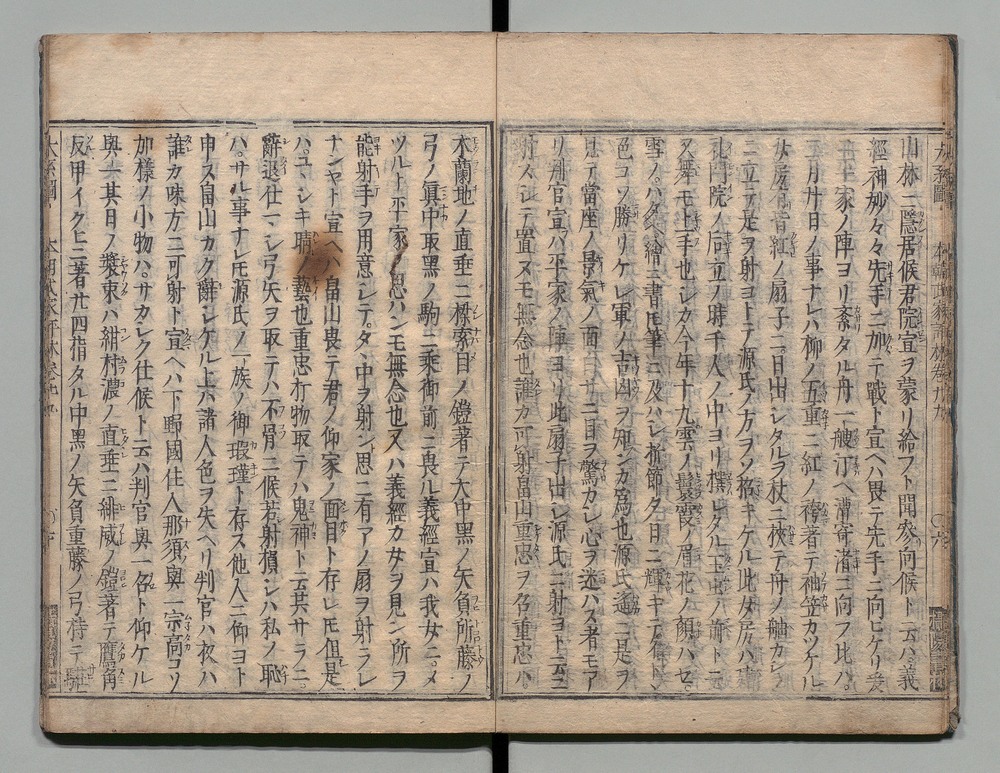 山林ニ隠居候君院宣ヲ蒙リ給フト聞参向候ト云ハ義
經神妙々々先手ニ加テ戰ト宣ヘハ畏テ先手ニ向ヒケリ
平家ノ陣ヨリ斎タル舟一艘汀ヘ漕寄渚ニ向フ比ハ
五月廿日ノ事ナレハ柳ノ五重ニ紅ノ袴著テ袖笠カツケル
女房有皆紅ノ扇子ニ日出シタルヲ杖ニ挾テ舟ノ舳カシラ
ニ立テ是ヲ射ヨトテ源氏ノ方ヲソ招キケル此女房ハ建
礼門院ノ后立ノ時千人ノ中ヨリ撰レタル玉虫ノ前トテ
又舞モ上手也シカ今年十九雲ノ鬢霞ノ眉花ノ顔ハセ
雪ノハタヘ繪ニ書トモ筆ニ及ハシ折節夕日ニ輝キテ
色コソ勝リケレ軍ノ吉凶ヲ知ンカ爲也源氏遙ニ是ヲ
見テ當座ノ景氣ノ面白サニ目ヲ驚カシ心ヲ迷ハス者モア
リ判官宣ハ平家ノ陣ヨリ此扇子出シ源氏ニ射ヨト云ニ
射スシテ置スモ無念也誰カ可射畠山重忠ヲ召重忠ハ
木蘭地ノ直垂ニ樔索目ノ鎧著テ大中黑ノ矢負所藤ノ
弓ノ眞中取黑ノ駒ニ乘御前ニ畏ル義經宣ハ我女ニメ
ツルト平家ノ思ハンモ無念也又ハ義經カ女ヲ見ン所ヲ
能射手ヲ用意シテタヽ中ヲ射ン思ニ有アノ扇ヲ射ラレ
ナンヤト宣ヘハ畠山畏テ君ノ仰家ノ面目ト存レトモ但是
ハユヽシキ晴藝也重忠打物取テハ鬼神ト云共サラニ
辭退仕マシ弓矢ヲ取テハ不骨ニ候若射損シハ私ノ恥
ハサル事ナレトモ源氏ノ一族ノ御瑕瑾ト存ス他人ニ仰ヨト
申ス畠山カク辭シケル上ハ諸人色ヲ失ヘリ判官ハ扨ハ
誰カ味方ニ可射ト宣ヘハ下野國住人那須與一宗高コソ
加樣ノ小物ハサカレク仕候ト云ハ判官與一召ト仰ケル
與一其日ノ裝束ハ紺村濃ノ直垂ニ緋威ノ鎧著テ鷹角
反甲イクヒニ著廿四指タル中黑ノ矢負重藤ノ弓持テ